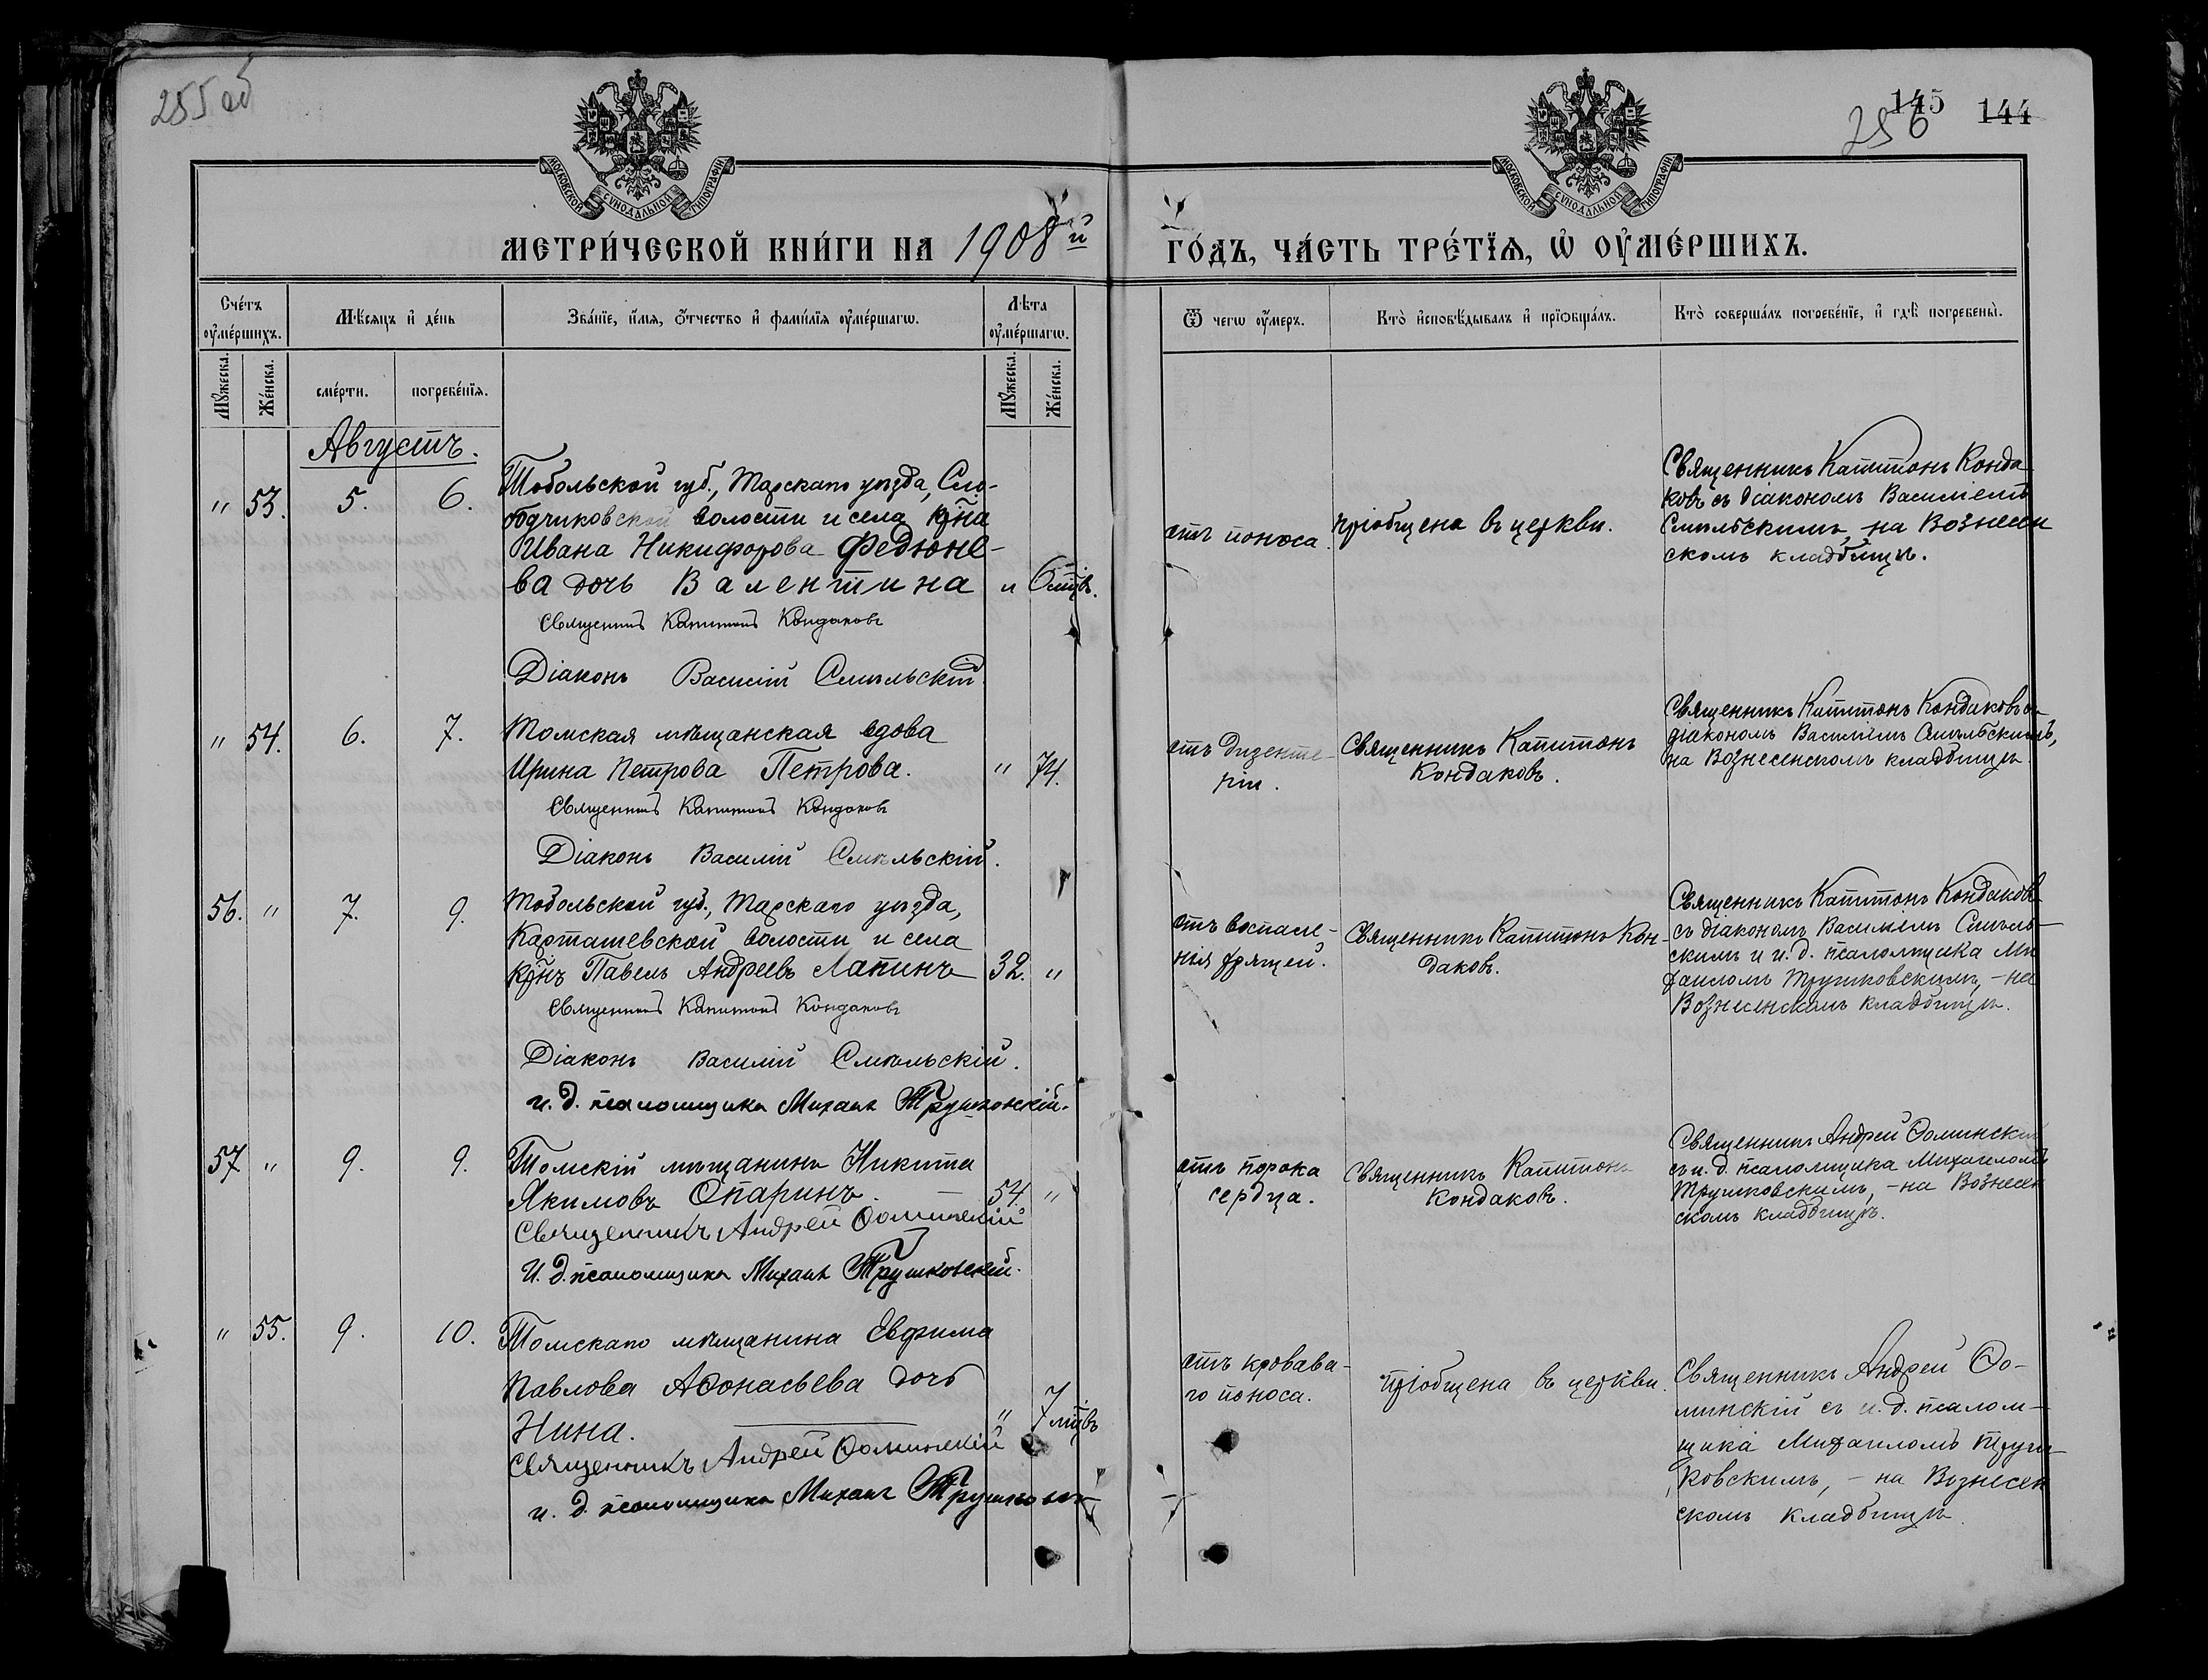 255 об
145 144
256
МОСКОВСКОЙ СѴНОДАЛЬНОЙ ТИПОГРАФІИ
МОСКОВСКОЙ СѴНОДАЛЬНОЙ ТИПОГРАФІИ
МЕТРИ́ЧЕСКОЙ КНИ́ГИ НА 1908й
ГО́ДЪ, ЧА́СТЬ ТРЕ́ТЇѦ, Ѡ҆ ОУ҆МЕ́РШИХЪ.
Сче́тъ
оу҆ме́ршихъ.
Мѣ́сяцъ и҆ де́нь
Зва́нїе, и҆́мѧ, ѻ҆́тчество и҆ фами́лїѧ оу҆ме́ршагѡ.
Лѣ́та
оу҆ме́ршагѡ.
Мꙋ́жеска.
Же́нска.
сме́рти.
погребе́нїѧ.
Мꙋ́жеска.
Же́нска.
Ѿ чегѡ̀ оу҆́меръ.
Кто̀ и҆сповѣ́дывалъ и҆ прїѡбща́лъ.
Кто̀ соверша́лъ погребе́нїе, и҆ гдѣ̀ погребены̀.
Августъ.
" 53. 5. 6.
Тобольской губ., Тарскаго уѣзда, Сло-
бодчиковской волости и села кр̃на
Ивана Никифорова Федюне-
ва дочь Валентина " 6 мц̃въ.
Священникъ Капитонъ Кондаковъ
Діаконъ Василій Смѣльскій.
отъ поноса.
пріобщена въ церкви.
Священникъ Капитонъ Конда-
ковъ съ діакономъ Василіемъ
Смѣльскимъ, на Вознесен
скомъ кладбищѣ.
" 54. 6. 7.
Томская мѣщанская вдова
Ирина Петрова Петрова. " 74.
Священникъ Капитонъ Кондаковъ
Діаконъ Василій Смѣльскій.
отъ дизенте-
ріи.
Священникъ Капитонъ
Кондаковъ.
Священникъ Капитонъ Кондаковъ съ
діакономъ Василіемъ Смѣльскимъ,
на Вознесенскомъ кладбищѣ
56. " 7. 9.
Тобольской губ., Тарскаго уѣзда,
Карташевской волости и села
кр̃нъ Павелъ Андреевъ Лапинъ 32. "
Священникъ Капитонъ Кондаковъ
Діаконъ Василій Смѣльскій.
и. д. псаломщика Михаилъ Трушковскій.
отъ воспале-
нія хрящей.
Священникъ Капитонъ Кон-
даковъ.
Священникъ Капитонъ Кондаковъ
съ діакономъ Василіемъ Смѣль-
скимъ и и. д. псаломщика Ми
хаиломъ Трушковскимъ, - на
Вознесенскомъ кладбищѣ.
57 " 9. 9.
Томскій мѣщанинъ Никита
Якимовъ Опаринъ. 54. "
Священникъ Андрей Ѳоминскій
И. д. псаломщика Михаилъ Трушковскій.
отъ порока
сердца.
Священникъ Капитонъ
Кондаковъ.
Священникъ Андрей Ѳоминскій
съ и. д. псаломщика Михаиломъ
Трушковскимъ, - на Вознесен
скомъ кладбищѣ.
" 55. 9. 10.
Томскаго мѣщанина Евфима
Павлова Аѳонасьева дочь
Нина. " 7 мц̃въ
Священникъ Андрей Ѳоминскій
и. д. псаломщика Михаилъ Трушковск
отъ кровава-
го поноса.
пріобщена въ церкви.
Священникъ Андрей Ѳо-
минскій съ и. д. псалом-
щика Михаиломъ Труш-
ковскимъ, - на Вознесен
скомъ кладбищѣ.